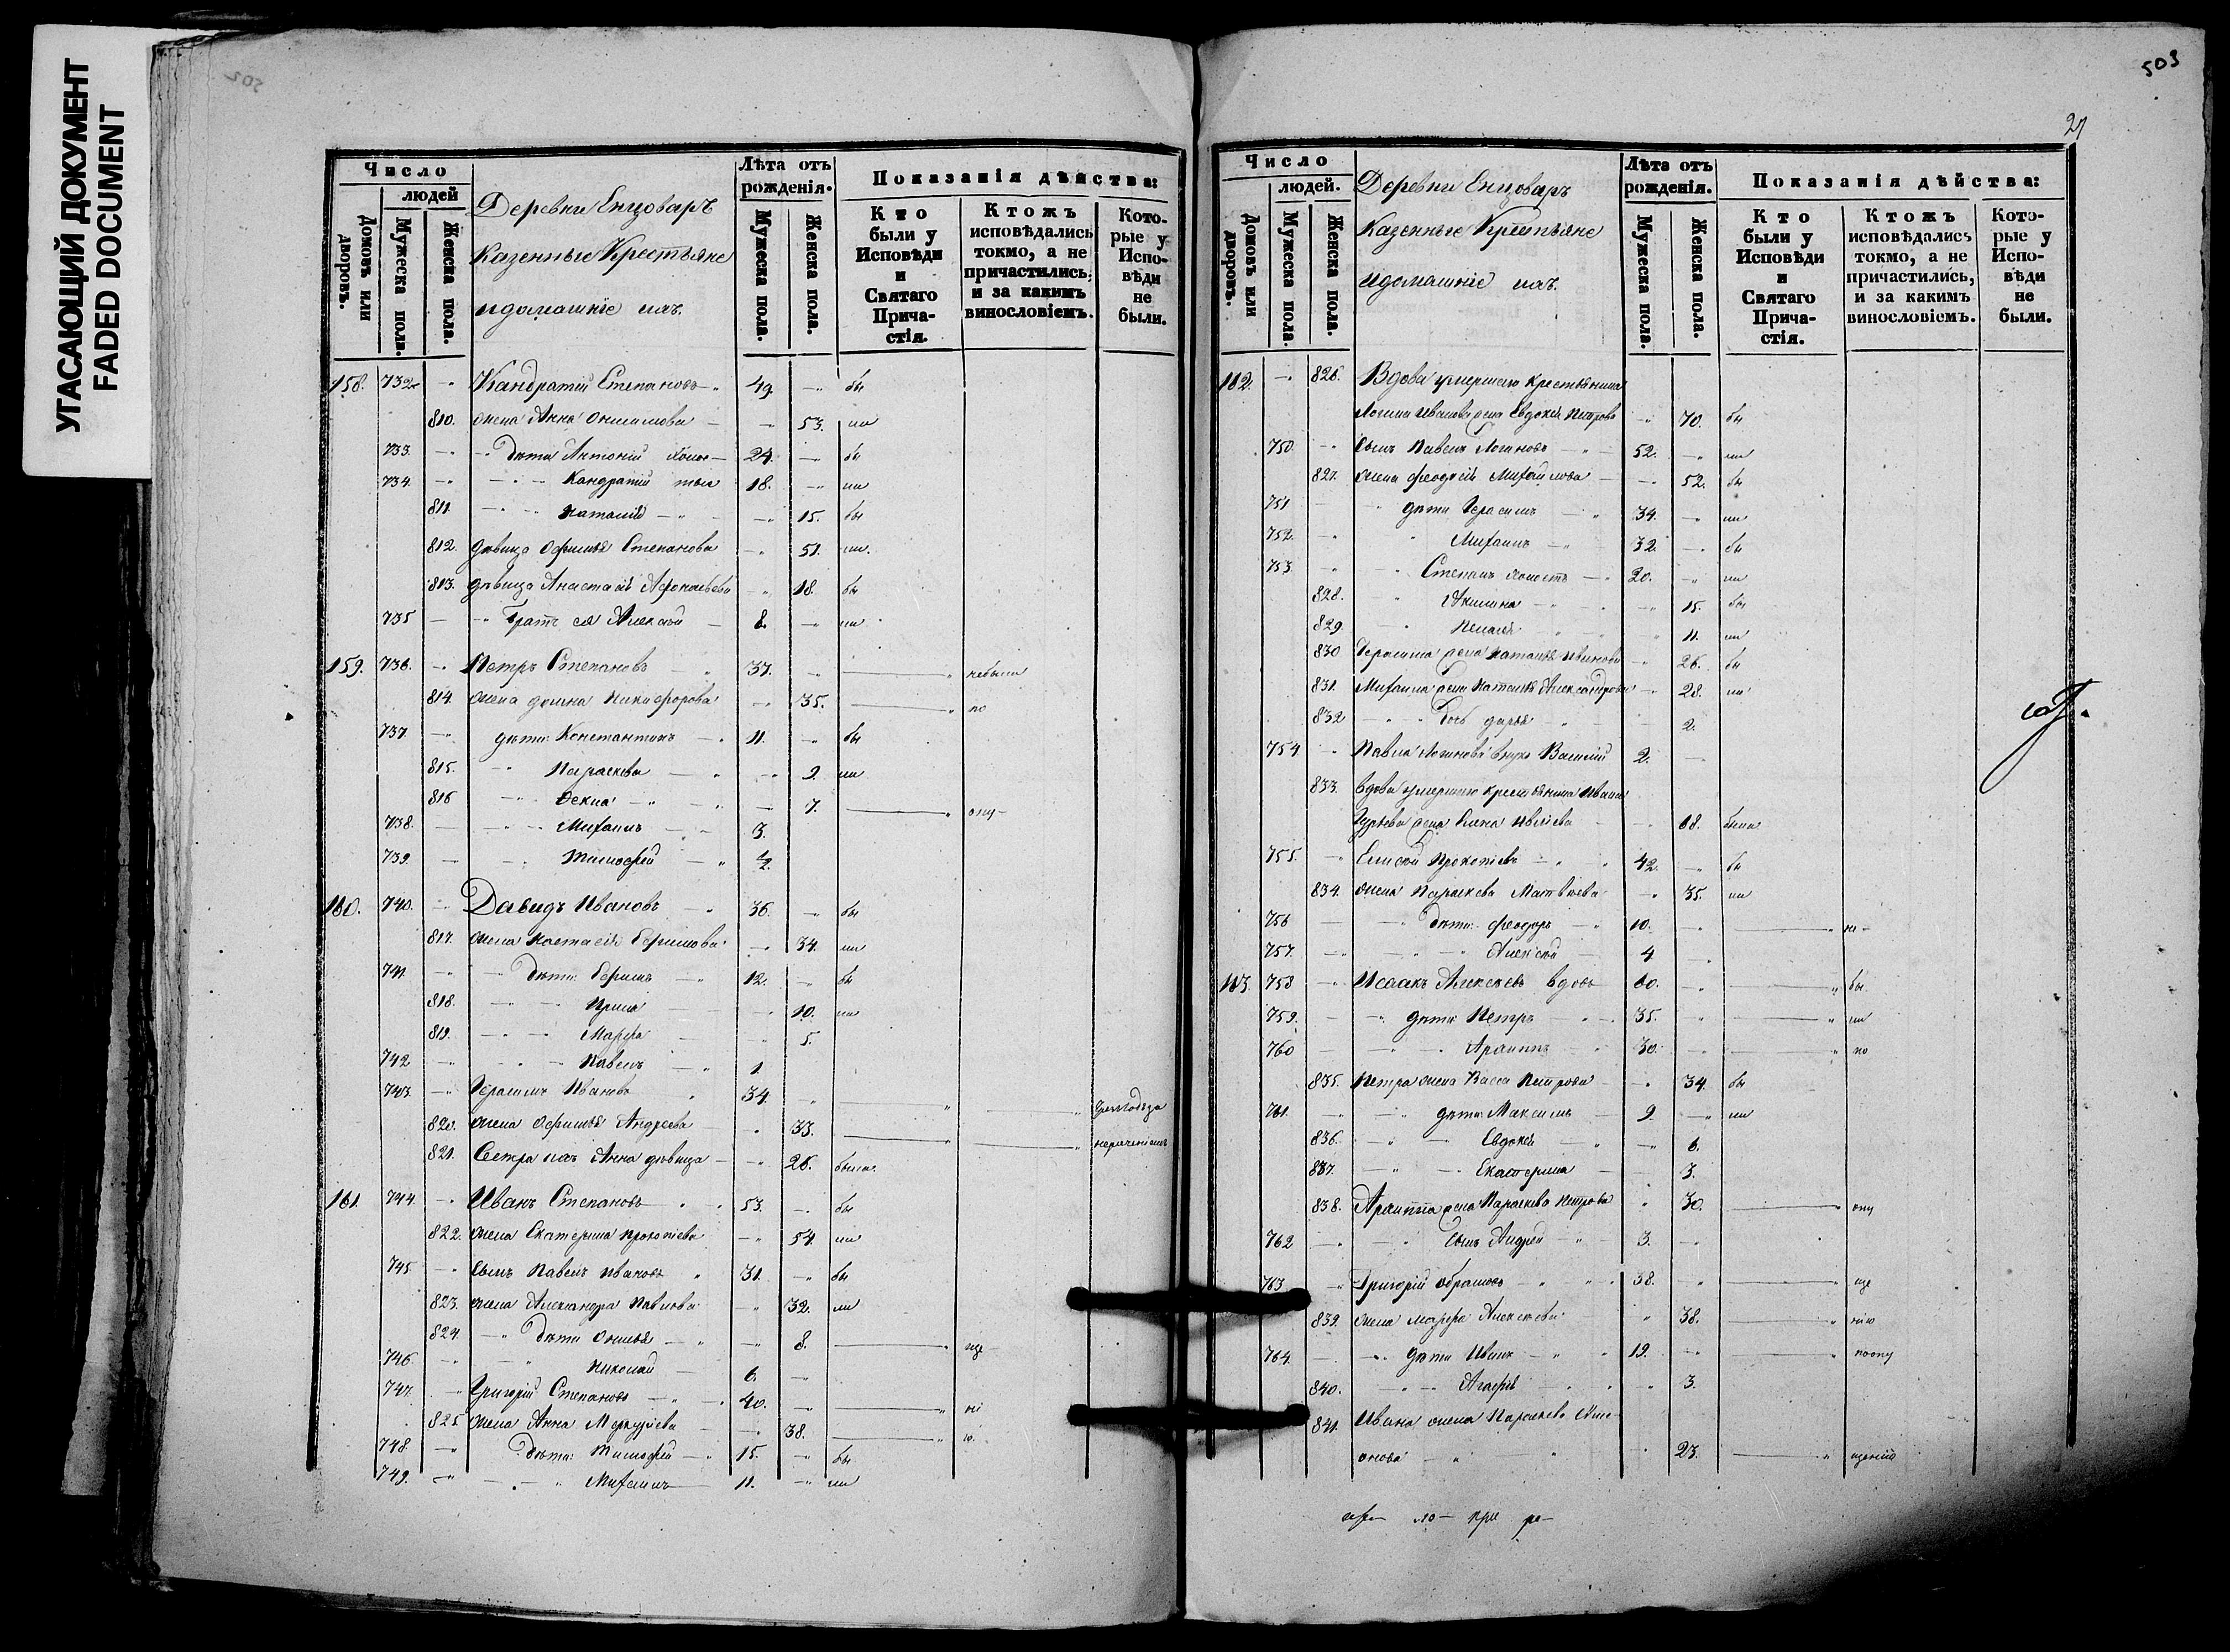 УГАСАЮЩИЙ ДОКУМЕНТ
FADED DOCUMENT
502
Число
людей
Домовъ или дворовъ.
Мужеска пола.
Женска пола.
Деревни Енцоваръ
Казенные Крестьяне
и домашніе ихъ.
Лѣта отъ рожденія.
Мужеска пола.
Женска пола.
Показанія дѣйства:
Кто были у Исповѣди и Святаго Прича-стія.
Ктожъ исповѣдались токмо, а не причастились, и за какимъ винословіемъ.
Кото-рые у Испо-вѣди не были.
158. 732 Кандратій Степановъ 49. бы
810. жена Анна Онисимова 53. ли
733. дѣти Антоній холос 24. бы
734. Кандратій тые 18. ли
811. Наталія 15. бы
812. дѣвица Офимья Степанова 51. ли.
813. дѣвица Анастасія Афонасьева 18. бы
735 братъ ея Алексѣй 8. ли
159. 736. Петръ Степановъ 37. небыли
814. жена Домна Никифорова 35. по
737 дѣти: Константинъ 11. бы
815. Параскева 9. ли
816 Фекла 7. опу
738. Михаилъ 3.
739. Тимофей ½
160. 740. Давидъ Ивановъ 36. бы
817. жена Настасія Ефимова 34. ли
741 дѣти: Ефимъ 12. бы
818. Ирина 10. ли
819. Марфа 5.
742 Павелъ 1.
743. Герасимъ Ивановъ 34.
820. жена Офимья Андреева 33. нераченіемъ
821. Сестра ихъ Анна дѣвица 26. была.
161. 744 Иванъ Степановъ 53. бы
822. жена Екатерина Прокопіева 54. ли
745 сынъ Павелъ Ивановъ 31. бы
823. жена Александра Павлова 32. ли
824. дѣти 8. ще
746 Николай 6.
747. Григорій Степановъ 40. ні
825 жена Анна Меркурьева 38. ю.
748. дѣти: Тимофей 15. бы
749. Михаилъ 11. ли
503
21
Число
людей.
Домовъ или дворовъ.
Мужеска пола.
Женска пола.
Деревни Енцоваръ
Казенные Крестьяне
и домашніе ихъ.
Лѣта отъ рожденія.
Мужеска пола.
Женска пола.
Показанія дѣйства:
Кто были у Исповѣди и Святаго Прича-стія.
Ктожъ исповѣдались токмо, а не причастились, и за какимъ винословіемъ.
Кото-рые у Испо-вѣди не были.
162. 826. Вдова умершаго крестьянина
Логина Иванова жена Евдокія Петрова 70. бы
750. сынъ Павелъ Логиновъ 52. ли
827. жена Феодосія Михайлова 52. бы
751 дѣти Герасимъ 34. ли
752. Михаилъ 32. бы
753 Степанъ холостъ 20. ли
828. Акилина 15. бы
829 Пелагія 11. ли
830 Герасима жена Наталія Иванова 26. бы
831. Михаила жена Наталья Александрова 28. ли
832 дочь Дарья 2.
754 Павла Логинова внукъ Василій 2.
833. вдова умершаго крестьянина Ивана
Гурьева жена Елена 68. была
755. Елисей Прокопіевъ 42. бы
834. жена Параскева Матвѣева 35. ли
756 дѣти: Феодоръ 10. не
757. Алексѣй 4
163. 758 Исаакъ Алексеевъ вдовъ 60. бы
759. дѣти Петръ 35. ли
760 Архиппъ 30. по
835. Петра жена Васса Петрова 34. бы
761. дѣти: Максимъ 9. ли
836. Евдокія 6.
837. Екатерина 3.
838. Архиппа жена Параскева Петрова 30. опу
762 сынъ Андрей 3.
763 Григорій 38. ще
839. жена Марфа Алексеева 38. нію
764. дѣти Иванъ 19. по опу
840. Агафія 3.
841. Ивана жена Параскева Сим-
онова 23. щенію